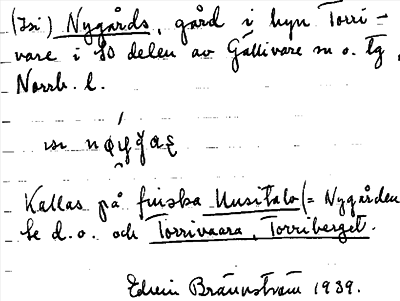 (Isi) Nygårds, gård i byn Torri-
vare i SO delen av Gällivare sn o. tg,
Norrb. l.
Kallas på finska Uusitalo (= Nygården
se d. o. och Torrivaara, Torriberget.
Edvin Brännström 1939.